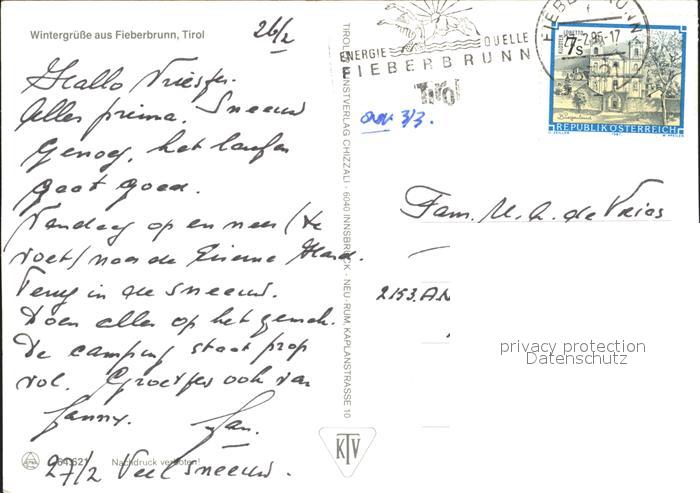 Wintergrüße aus Fieberbrunn, Tirol
26/2
Hallo Vriesjes.
Alles prima. Sneeuw
genoeg, het laufen
gaat goed.
Vandaag op en neer (te
voet) naar de Hand.
Terug in de sneeuw.
Doen alles op het gemak.
De camping staat prop
vol. Groetjes ook van
Janny. Jan.
27/2 Veel sneeuw.
Nachdruck verboten!
TIROLER KUNSTVERLAG CHIZZALI · 6040 INNSBRUCK - NEU-RUM, KAPLANSTRASSE 10
KTV
ENERGIE QUELLE
FIEBERBRUNN
Tirol
FIEBERBRUNN
-7.95-17
7s
REPUBLIK ÖSTERREICH
3/3.
Fam. de Vries
2153.AN
privacy protection
Datenschutz